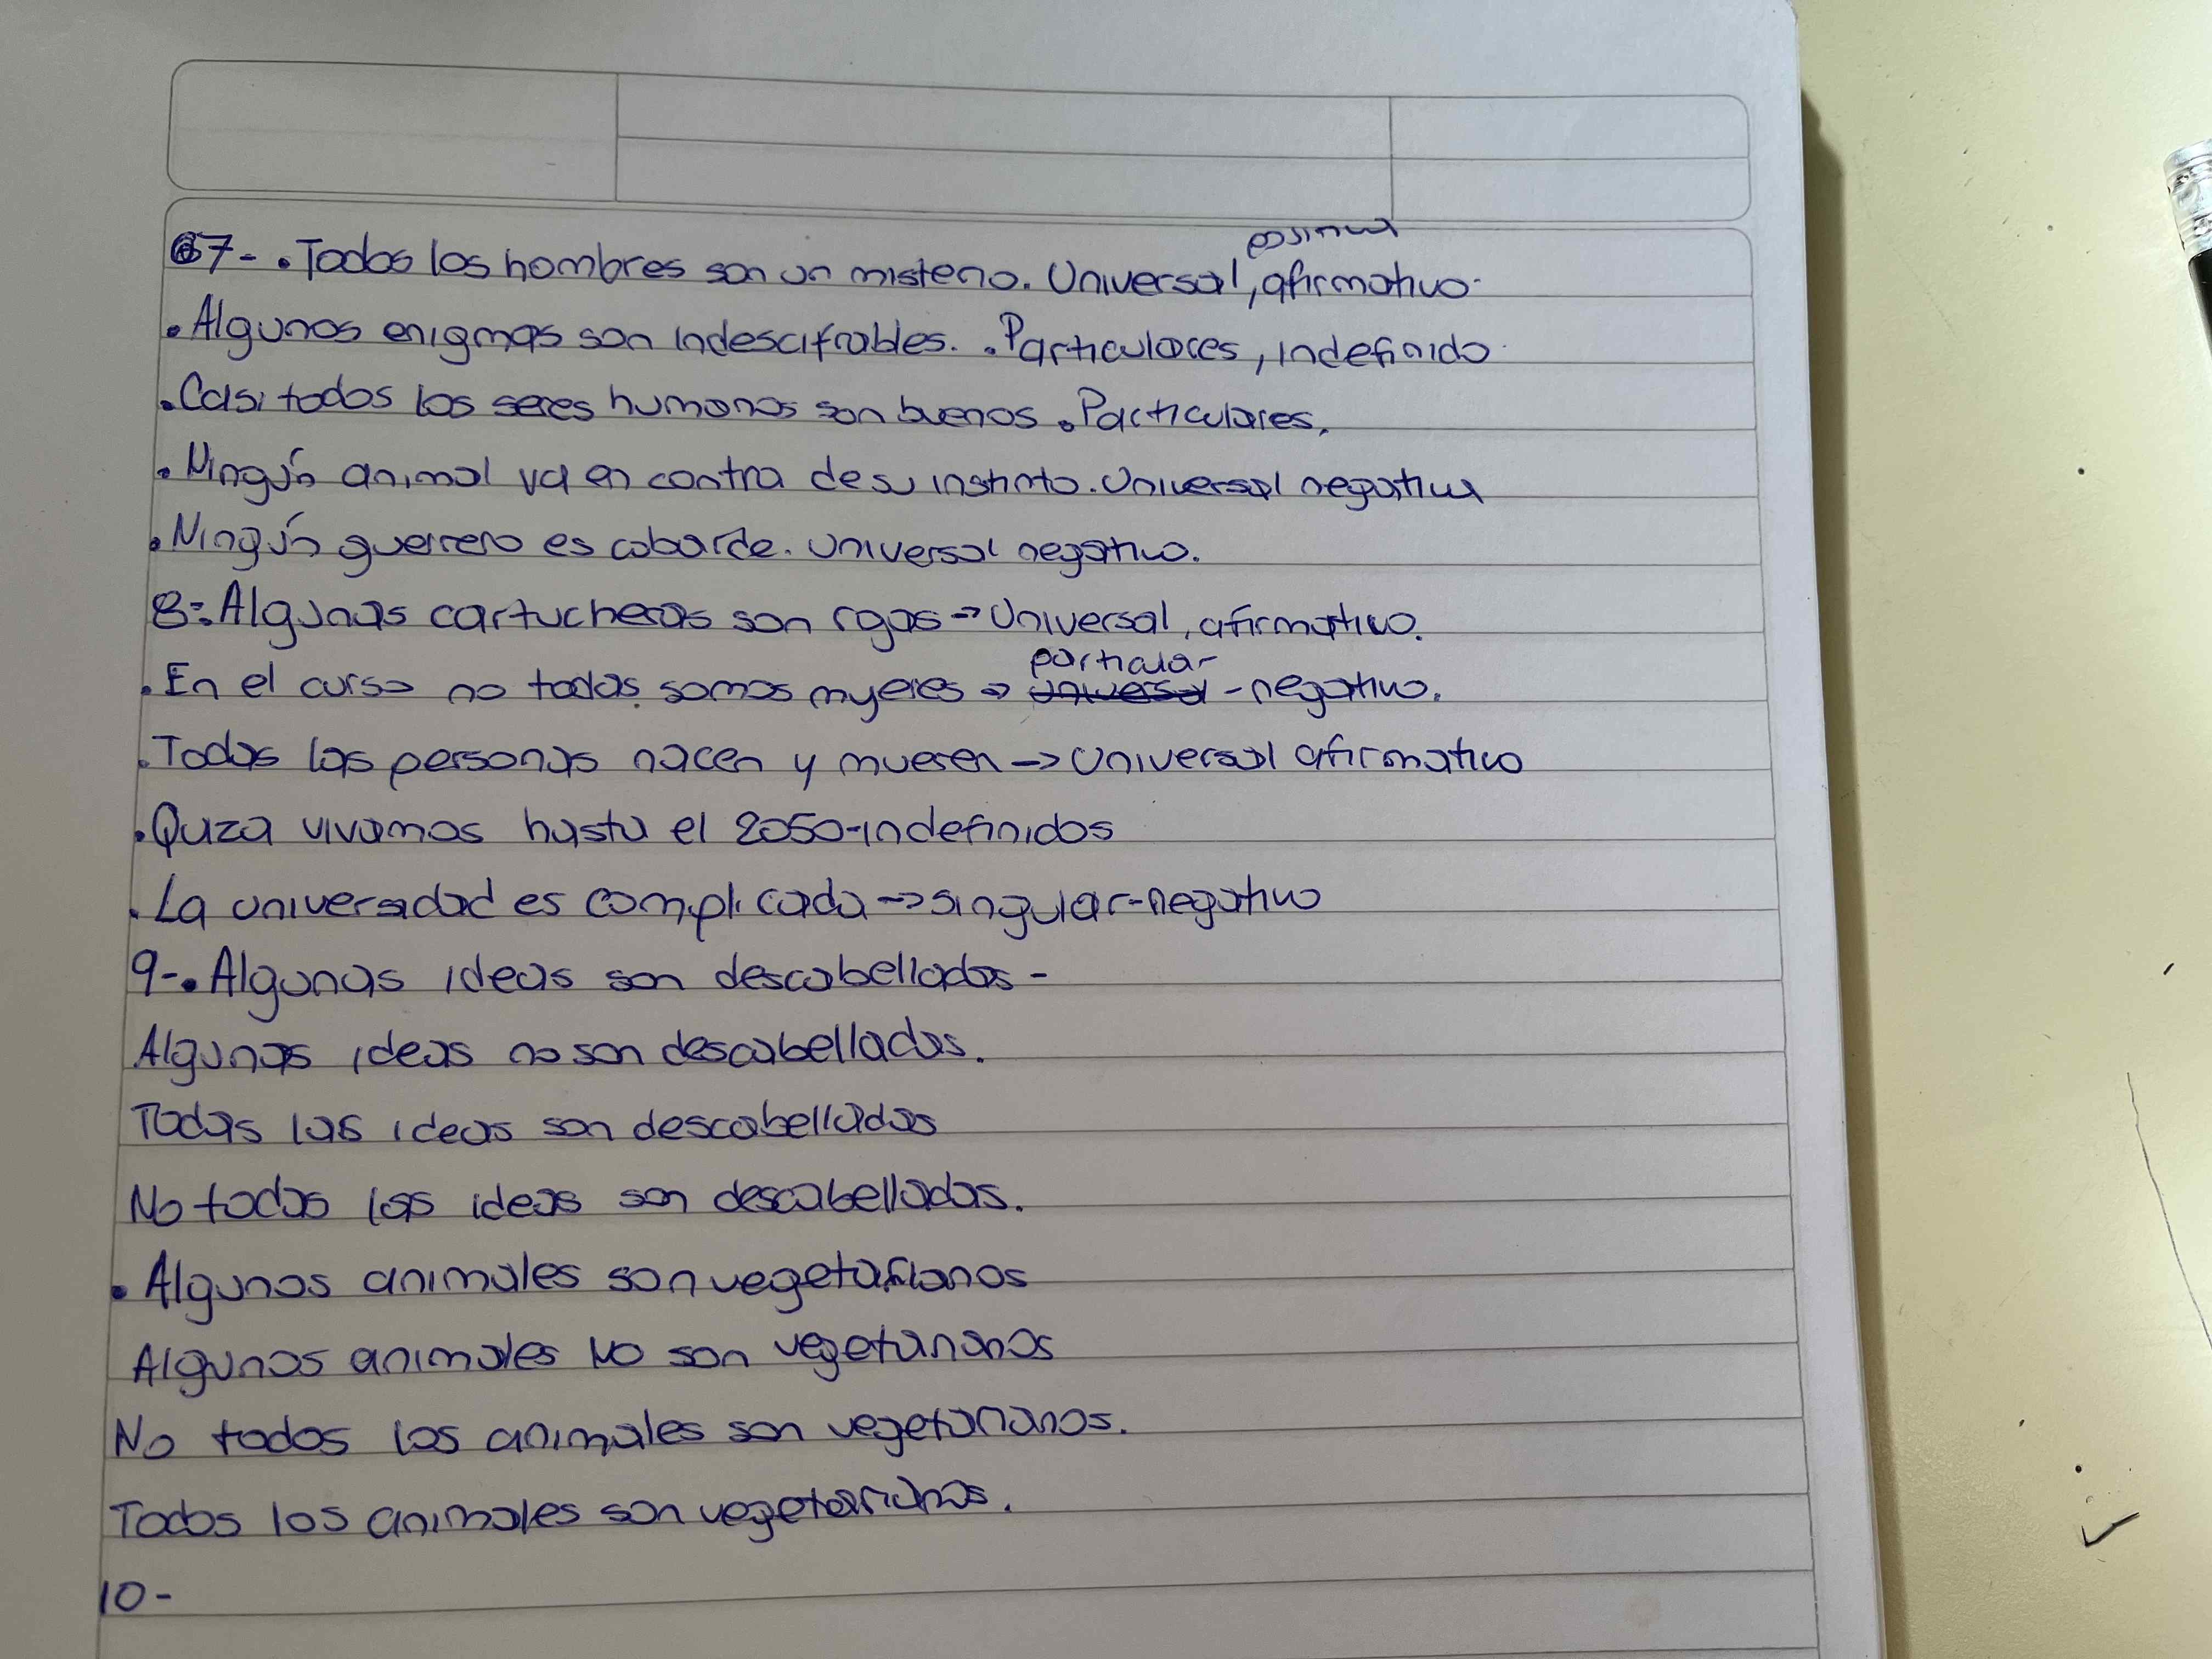 7-. Todos los hombres son un misterio. Universal, afirmativo.
. Algunos enigmas son indescifrables. . Particulares, indefinido.
. Casi todos los seres humanos son buenos . Particulares.
. Ningún animal va en contra de su instinto. Universal negativa
. Ningún guerrero es cobarde. universal negativo.
8-. Algunas cartucheras son rojas → Universal, afirmativo.
particular
. En el curso no todas somos mujeres → universal - negativo.
. Todas las personas nacen y mueren → universal afirmativo
. Quiza vivamos hasta el 2050-indefinidos
. La universidad es complicada → singular-negativo
9-. Algunas ideas son descabelladas -
Algunas ideas no son descabelladas.
Todas las ideas son descabelladas
No todas las ideas son descabelladas.
. Algunos animales son vegetarianos
Algunos animales NO son vegetarianos
No todos los animales son vegetarianos.
Todos los animales son vegetarianos.
10-